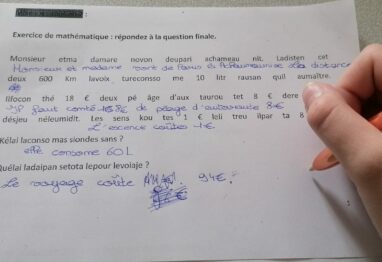 Exercice de mathématique : répondez à la question finale.
Monsieur etma damare novon deupari achameau nit. Ladisten cet
Monsieur et madame vont de Paris à la distance
deux 600 Km lavoix tureconsso me 10 litr rausan quil aumaître.
lilocon thé 18 € deux pé âge d'aux taurou tet 8 € dere
Il faut compté 18€ de péage d'autoroute 8€
désjeu néleumidit. Les sens kou tes 1 € leli treu ilpar ta 8
L'escence coûtes 1€
Kélai laconso mas siondes sans ?
elle consome 60 L
Quélai ladaipan setota lepour levoiaje ?
Le voyage coûte 94€.